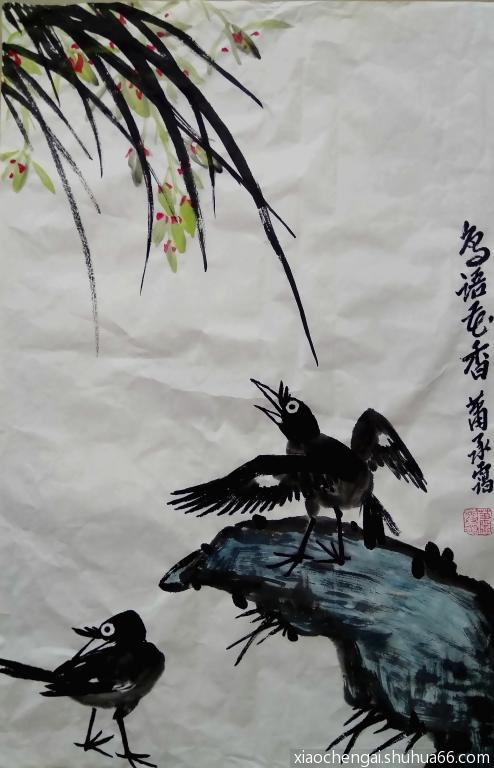 鸟语花香 萧承寫
xiaochengai.shuhua66.com